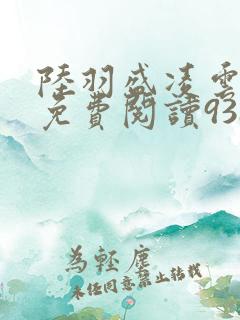 陸羽盛凌雲
免費閱讀93
為輕塵
未任同意禁止轉載